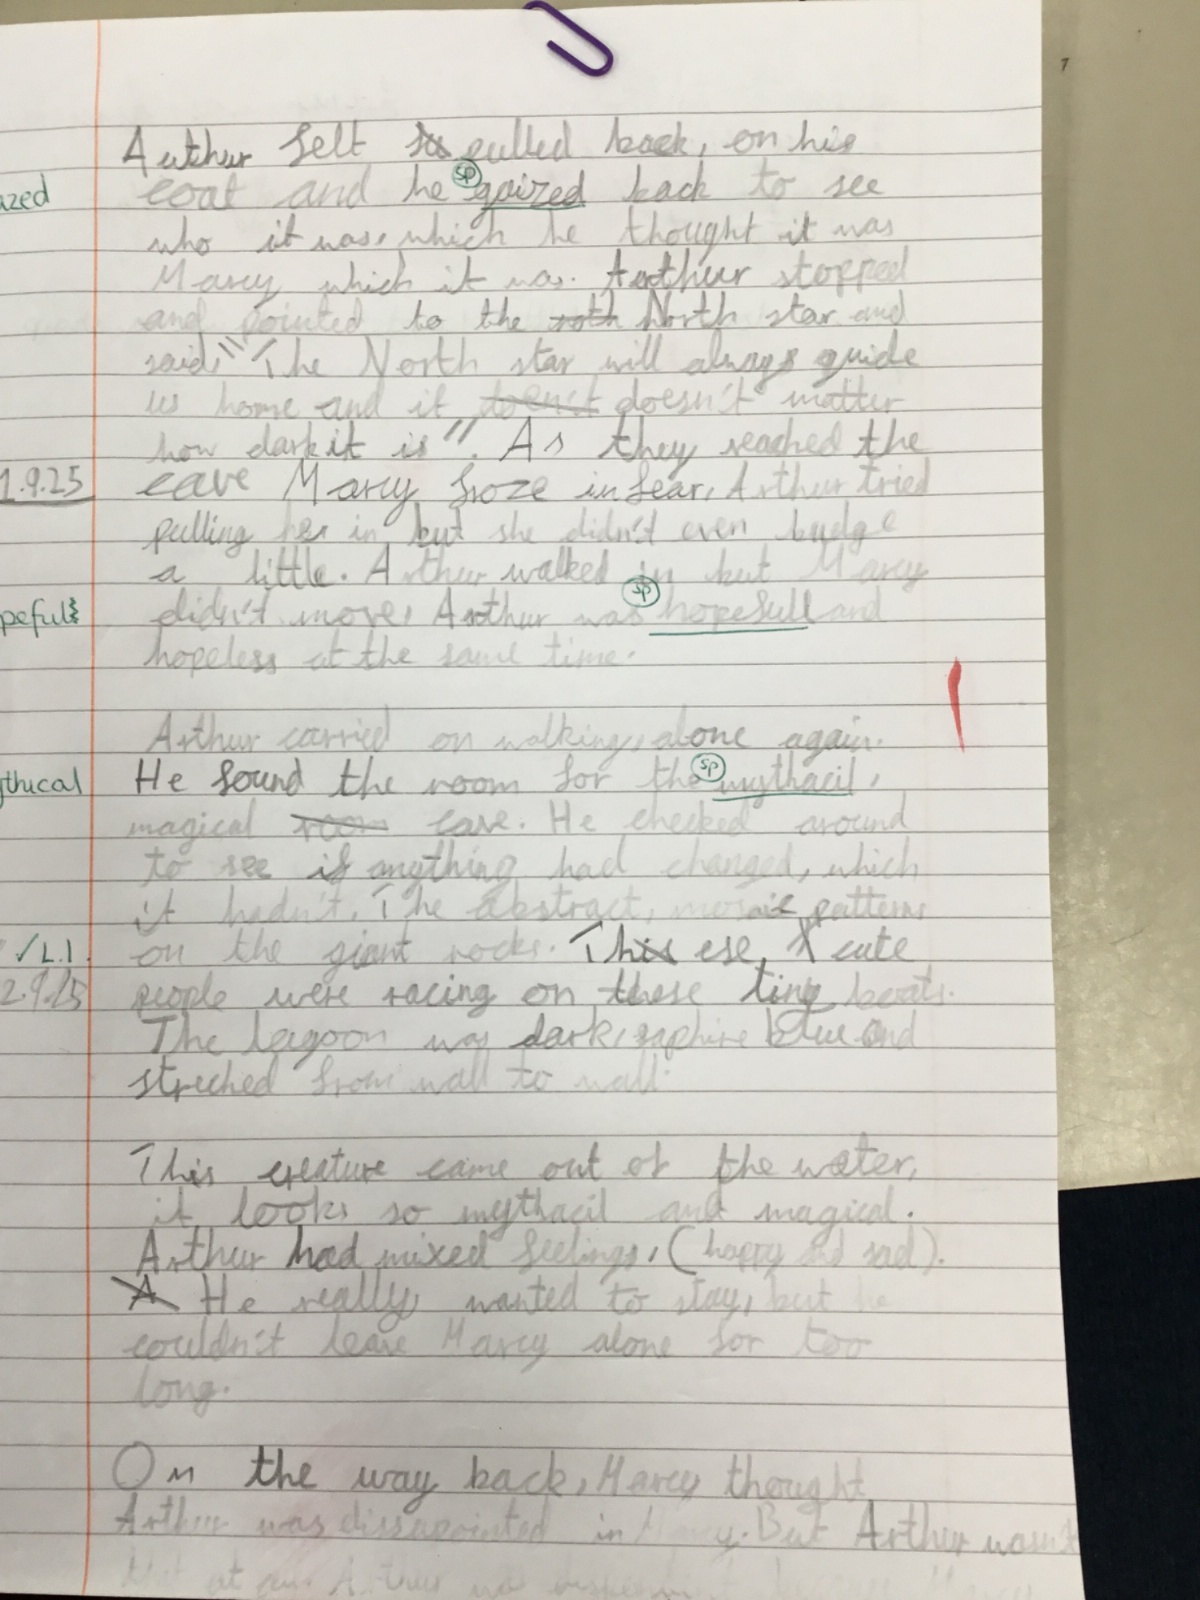 Arthur felt pulled back, on his
azed
coat and he sp gaized back to see
who it was, which he thought it was
Marcy which it was. Arthur stopped
and pointed to the North star and
said, "The North star will always guide
us home and it doesn't doesn't matter
how dark it is". As they reached the
1.9.25
cave Marcy froze in fear, Arthur tried
pulling her in but she didn't even budge
a little. Arthur walked in but Marcy
peful
didn't move, Arthur was sp hopefull and
hopeless at the same time.
Arthur carried on walking, alone again.
ythical
He found the room for the sp mythacil,
magical room cave. He checked around
to see if anything had changed, which
it hadn't. The abstract, mosaic patterns
✓L.I.
on the giant rocks. This ese, cute
2.9.25
people were racing on these tiny boats.
The lagoon was dark, saphire blue and
streched from wall to wall.
This creature came out of the water,
it looks so mythacil and magical.
Arthur had mixed feelings, (happy and sad).
A He really wanted to stay, but he
couldn't leave Marcy alone for too
long.
On the way back, Marcy thought
Arthur was dissapointed in Marcy. But Arthur wasn't
at all. Arthur was Marcy